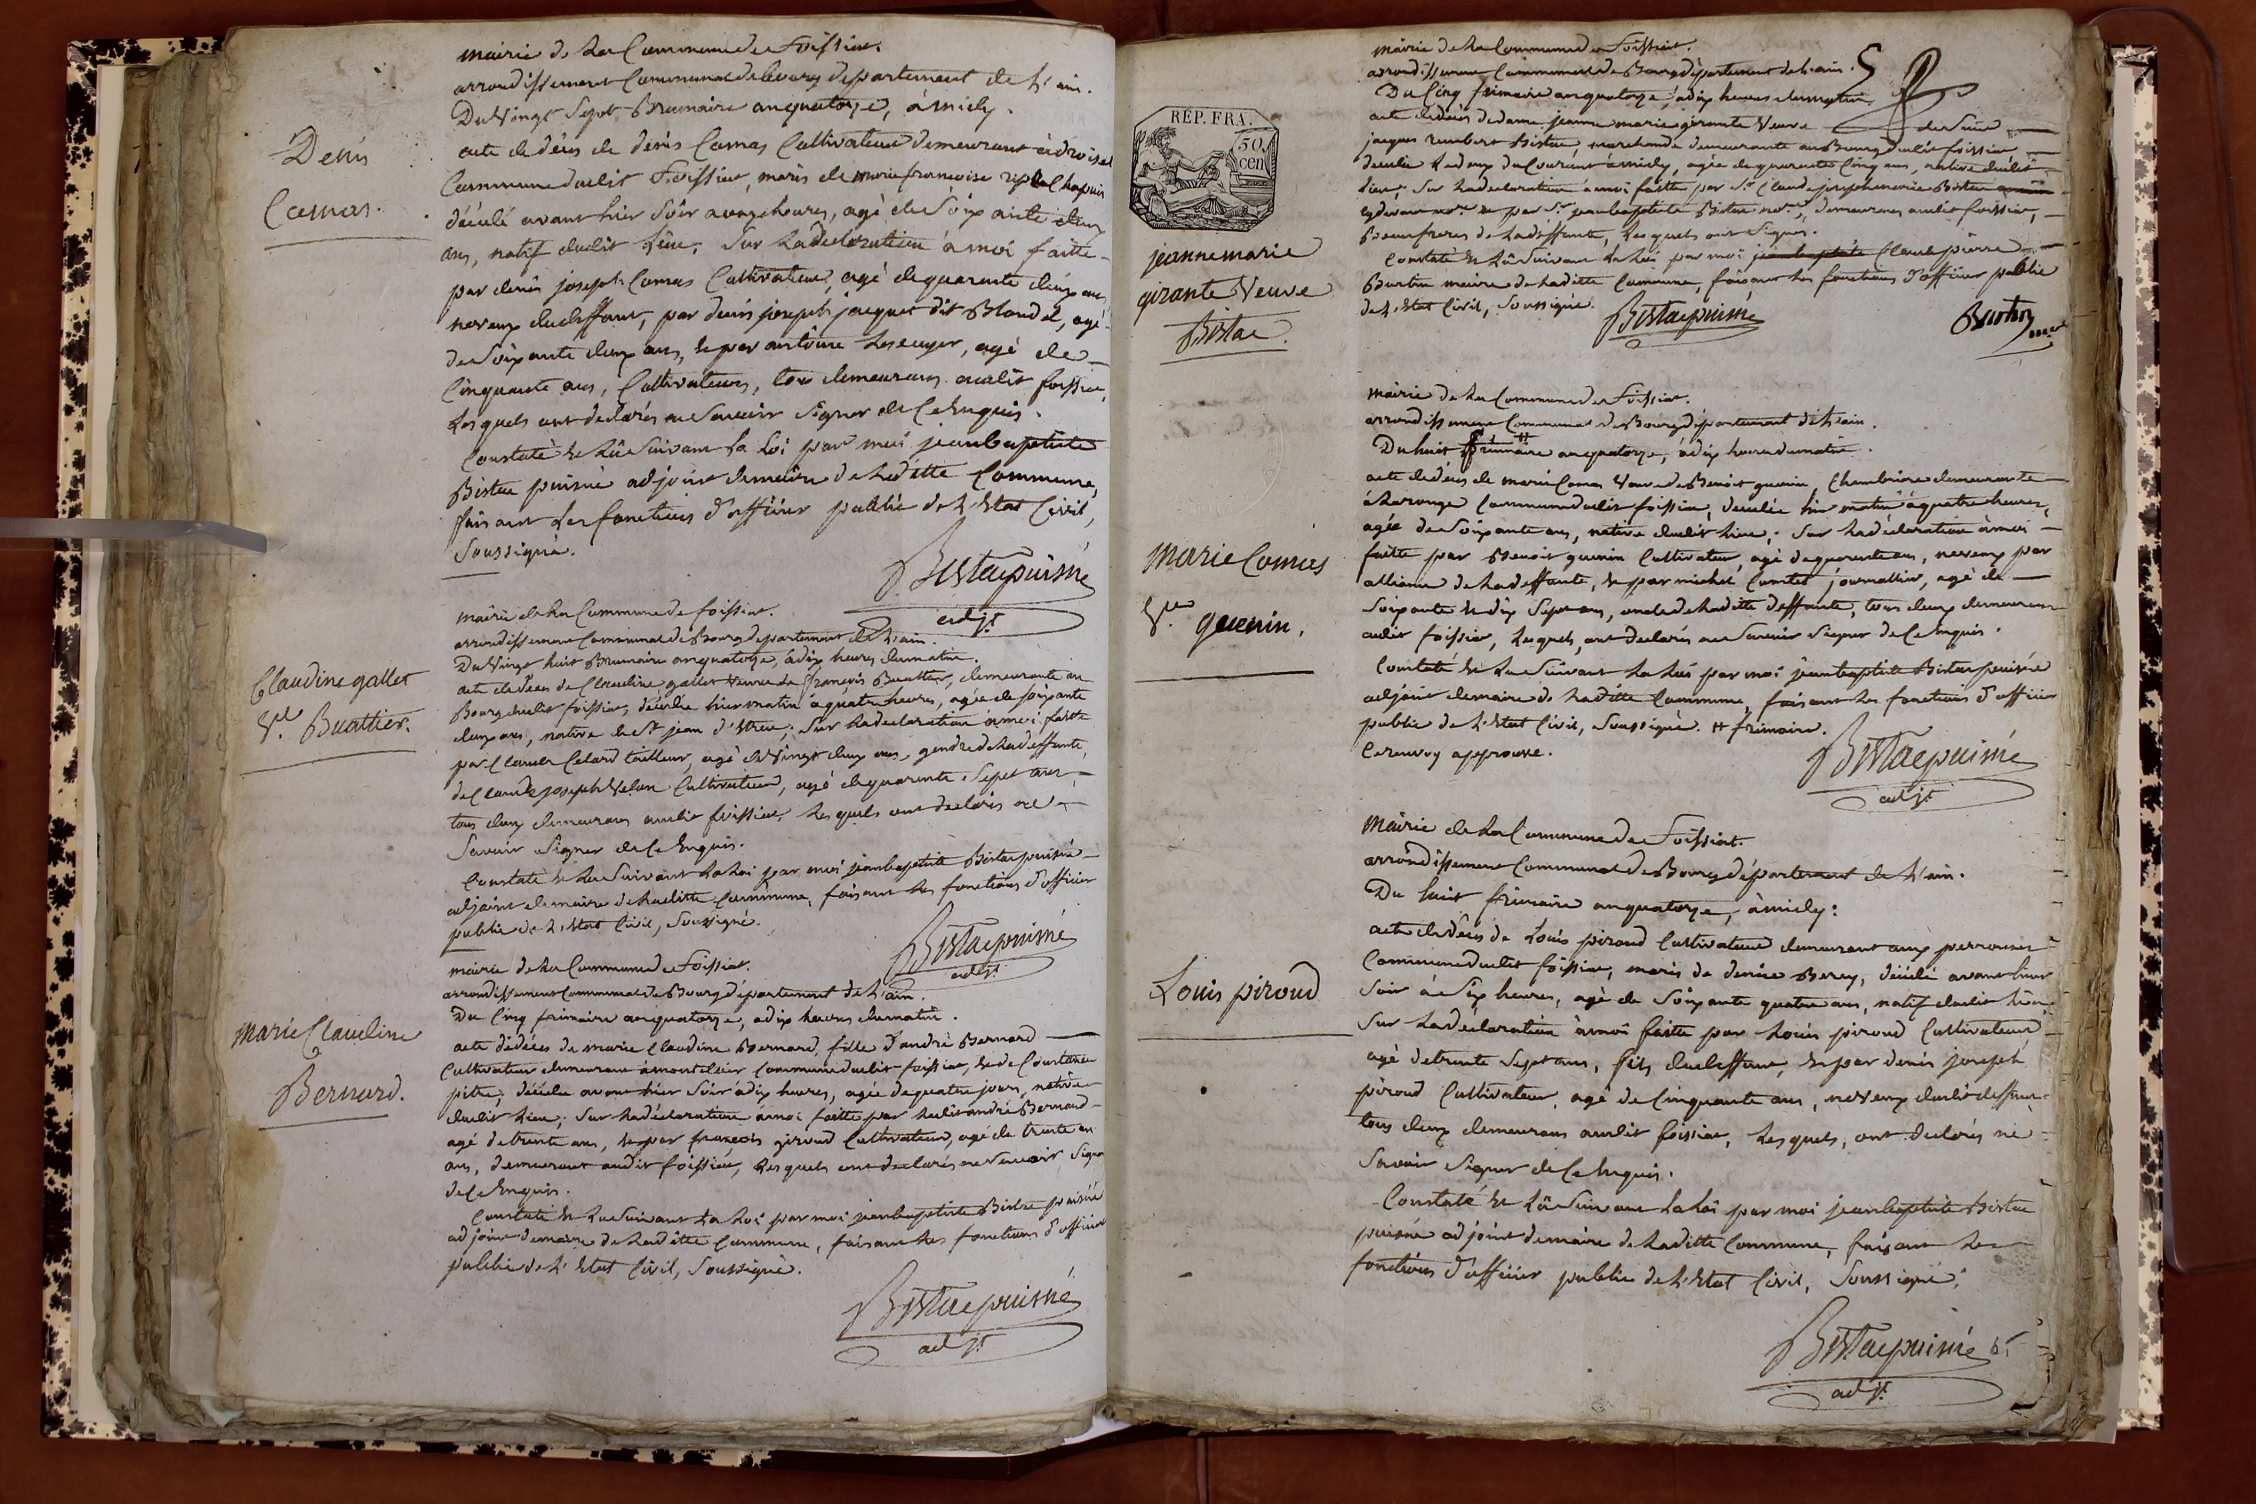 mairie de La Commune de Foissiat.
arrondissement Communal de bourg departement de L'ain.
Du Vingt Sept Brumaire an quatorze, à midy.
acte de décès de denis Camas Cultivateur demeurant à
Commune dudit Foissiat, maris de marie francoise
décédé avant hier Soir a onze heures, agé de Soixante deux
ans, natif dudit Lieu, Sur La declaration à moi faitte
par denis joseph Camas Cultivateur, agé de quarante deux ans
neveux du deffunt, par denis joseph jacquet dit Blondel, agé
de Soixante deux ans, et par antoine Lescuyer, agé de
Cinquante ans, Cultivateurs, tous demeurans audit foissiat,
Lesquels ont declarés ne Savoir Signer de Ce Enquis.
Constaté et Lû Suivant La Loi par moi jean baptiste
Bistac puisné adjoint de maire de Laditte Commune,
faisant Les fonctions d'officier public de L'Etat Civil,
Soussigné.
Bistac puisné
adjt
Denis
Camas.
mairie de La Commune de foissiat.
arrondissement Communal de Bourg departement de L'ain.
Du Vingt huit Brumaire an quatorze, à dix heures du matin.
acte de décès de Claudine gallet Veuve de françois Buattier, demeurante au
Bourg dudit foissiat, décédée hier matin a quatre heures, agée de soixante
deux ans, native de St jean d'Etreu; Sur La declaration a moi faitte
par Claude Celard tailleur, agé de Vingt deux ans, gendre de La deffunte,
de Claude joseph Velon Cultivateur, agé de quarante Sept ans,
tous deux demeurans audit foissiat, Lesquels ont declarés ne
Savoir Signer de Ce Enquis.
Constaté et Lu Suivant La Loi par moi jean baptiste Bistac puisné
adjoint de maire de Laditte Commune, faisant Les fonctions d'officier
public de L'Etat Civil, Soussigné.
Bistac puisné
adjt
Claudine gallet
Ve. Buattier.
mairie de La Commune de Foissiat.
arrondissement Communal de Bourg département de L'ain.
Du Cinq frimaire an quatorze, a dix heures du matin.
acte décès de marie Claudine Bernard, fille d'andré Bernard
Cultivateur demeurant à Commune dudit foissiat, et de Constance
pitre, décédée avant hier Soir à dix heures, agée de quatre jours, native
dudit Lieu; Sur La déclaration à moi faitte par Ledit andré Bernard
agé de trente ans, et par françois giroud Cultivateur, agé de trente un
ans, demeurant audit foissiat, Lesquels ont declarés ne Savoir Signer
de Ce Enquis.
Constaté et Lu Suivant La Loi par moi jean baptiste Bistac puisné
adjoint de maire de Laditte Commune, faisant Les fonctions d'officier
public de L'Etat Civil, Soussigné.
Bistac puisné
adjt
Marie Claudine
Bernard.
mairie de La Commune de Foissiat.
arrondissement Communal de Bourg département de L'ain.
Du Cinq frimaire an quatorze, à dix heures du matin,
acte de décès de dame jeanne marie girante Veuve de Sieur
jacques rambert Bistac, marchande demeurante au Bourg dudit foissiat
décédée Le deux du Courant à midy, agée de quarante Cinq ans, native dudit
Lieu; Sur La declaration a moi faitte par Sr. Claude joseph marie Bistac
cy devant nore. et par Sr. jean baptiste Bistac nore., demeurans audit foissiat,
Beaux freres de La deffunte, Lesquels ont Signés.
Constaté et Lû Suivant La Loi par moi jean baptiste Claude pierre
Burtin maire de Laditte Commune, faisant Les fonctions d'officier public
de L'Etat Civil, Soussigné.
Bistac puisné
Burtin
RÉP. FRA.
50
cen
jeanne marie
girante Veuve
Bistac.
mairie de La Commune de Foissiat.
arrondissement Communal de Bourg département de L'ain.
Du huit frimaire an quatorze, à dix heures du matin.
acte de décès de marie Camas Veuve de Benoit guenin, Chambriere demeurante
à Commune dudit foissiat, décédée hier matin à quatre heures,
agée de Soixante ans, native dudit Lieu; Sur La declaration à moi
faitte par Benoit guenin Cultivateur, agé de quarante ans, neveux par
alliance de La deffunte, et par michel journallier, agé de
Soixante et dix Sept ans, oncle de Laditte deffunte, tous deux demeurans
audit foissiat, Lesquels, ont declarés ne Savoir Signer de Ce Enquis.
Constaté et Lu Suivant La Loi par moi jean baptiste Bistac puisné
adjoint de maire de Laditte Commune, faisant Les fonctions d'officier
public de L'Etat Civil, Soussigné. # frimaire.
Ce renvoy approuvé.
Bistac puisné
adjt
Marie Camas
Ve. guenin.
Mairie de La Commune de Foissiat.
arrondissement Communal de Bourg département de L'ain.
Du huit frimaire an quatorze, à midy:
acte de décès de Louis piroud Cultivateur demeurant aux
Commune dudit foissiat, maris de denise Berey, décédé avant hier
Soir à Six heures, agé de Soixante quatre ans, natif dudit Lieu,
Sur La declaration à moi faitte par Louis piroud Cultivateur
agé de trente Sept ans, fils du deffunt, et par denis joseph
piroud Cultivateur, agé de Cinquante ans, neveux dudit deffunt
tous deux demeurans audit foissiat, Lesquels, ont declarés ne
Savoir Signer de Ce Enquis.
Constaté et Lû Suivant La Loi par moi jean baptiste Bistac
puisné adjoint de maire de Laditte Commune, faisant Les
fonctions d'officier public de L'Etat Civil, Soussigné.
Bistac puisné
adjt
Louis piroud